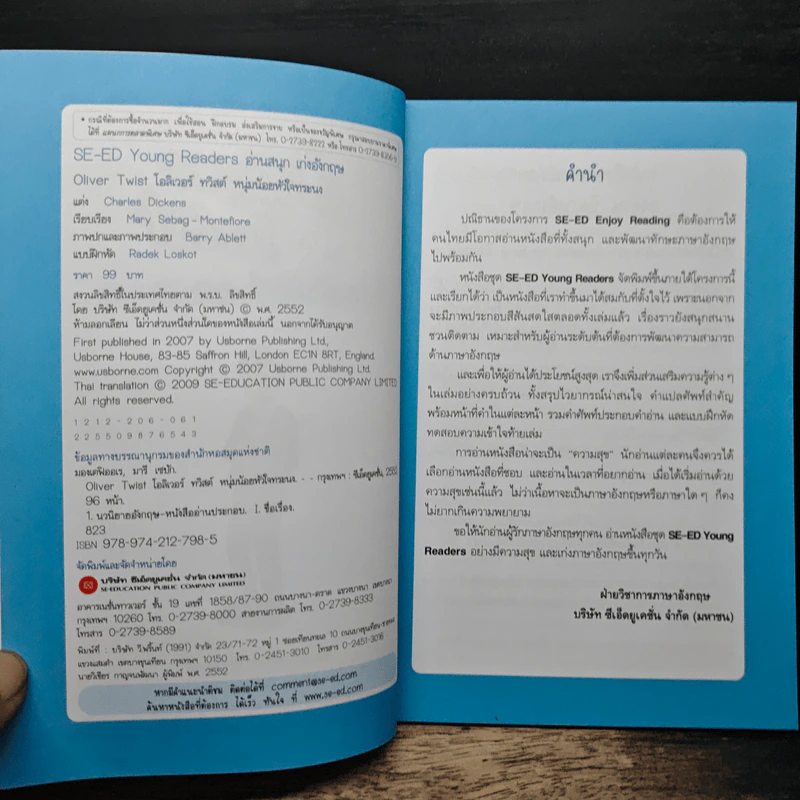 * กรณีที่ต้องการซื้อจำนวนมาก เพื่อใช้สอน ฝึกอบรม ส่งเสริมการขาย หรือเป็นของขวัญพิเศษ กรุณาสอบถามราคาพิเศษ
ได้ที่ แผนกการตลาดพิเศษ บริษัท ซีเอ็ดยูเคชั่น จำกัด (มหาชน) โทร. 0-2739-8222 หรือ โทรสาร 0-2739-8356-9
SE-ED Young Readers อ่านสนุก เก่งอังกฤษ
Oliver Twist โอลิเวอร์ ทวิสต์ หนุ่มน้อยหัวใจทระนง
แต่ง Charles Dickens
เรียบเรียง Mary Sebag-Montefiore
ภาพปกและภาพประกอบ Barry Ablett
แบบฝึกหัด Radek Loskot
ราคา 99 บาท
สงวนลิขสิทธิ์ในประเทศไทยตาม พ.ร.บ. ลิขสิทธิ์
โดย บริษัท ซีเอ็ดยูเคชั่น จำกัด (มหาชน) © พ.ศ. 2552
ห้ามลอกเลียน ไม่ว่าส่วนหนึ่งส่วนใดของหนังสือเล่มนี้ นอกจากได้รับอนุญาต
First published in 2007 by Usborne Publishing Ltd.,
Usborne House, 83-85 Saffron Hill, London EC1N 8RT, England.
www.usborne.com Copyright © 2007 Usborne Publishing Ltd.
Thai translation © 2009 SE-EDUCATION PUBLIC COMPANY LIMITED
All rights reserved.
1 2 1 2 - 2 0 6 - 0 6 1
2 2 5 5 0 9 8 7 6 5 4 3
ข้อมูลทางบรรณานุกรมของสำนักหอสมุดแห่งชาติ
มองเตฟิออเร, มารี เซบัก.
Oliver Twist โอลิเวอร์ ทวิสต์ หนุ่มน้อยหัวใจทระนง. - - กรุงเทพฯ : ซีเอ็ดยูเคชั่น, 2552
96 หน้า.
1. นวนิยายอังกฤษ-หนังสืออ่านประกอบ. I. ชื่อเรื่อง.
823
ISBN 978-974-212-798-5
จัดพิมพ์และจัดจำหน่ายโดย
บริษัท ซีเอ็ดยูเคชั่น จำกัด (มหาชน)
SE-EDUCATION PUBLIC COMPANY LIMITED
อาคารเนชั่นทาวเวอร์ ชั้น 19 เลขที่ 1858/87-90 ถนนบางนา-ตราด แขวงบางนา เขตบางนา
กรุงเทพฯ 10260 โทร. 0-2739-8000 สายงานการผลิต โทร. 0-2739-8333
โทรสาร 0-2739-8589
พิมพ์ที่ : บริษัท วีพริ้นท์ (1991) จำกัด 23/71-72 หมู่ 1 ซอยเทียนทะเล 10 ถนนบางขุนเทียน-ชายทะเล
แขวงแสมดำ เขตบางขุนเทียน กรุงเทพฯ 10150 โทร. 0-2451-3010 โทรสาร 0-2451-3016
นายวิเชียร กาญจนพัฒนา ผู้พิมพ์ พ.ศ. 2552
หากมีคำแนะนำติชม ติดต่อได้ที่ comment@se-ed.com
ค้นหาหนังสือที่ต้องการ ได้เร็ว ทันใจ ที่ www.se-ed.com
คำนำ
ปณิธานของโครงการ SE-ED Enjoy Reading คือต้องการให้
คนไทยมีโอกาสอ่านหนังสือที่ทั้งสนุก และพัฒนาทักษะภาษาอังกฤษ
ไปพร้อมกัน
หนังสือชุด SE-ED Young Readers จัดพิมพ์ขึ้นภายใต้โครงการนี้
และเรียกได้ว่า เป็นหนังสือที่เราทำขึ้นมาได้สมกับที่ตั้งใจไว้ เพราะนอกจาก
จะมีภาพประกอบสีสันสดใสตลอดทั้งเล่มแล้ว เรื่องราวยังสนุกสนาน
ชวนติดตาม เหมาะสำหรับผู้อ่านระดับต้นที่ต้องการพัฒนาความสามารถ
ด้านภาษาอังกฤษ
และเพื่อให้ผู้อ่านได้ประโยชน์สูงสุด เราจึงเพิ่มส่วนเสริมความรู้ต่าง ๆ
ในเล่มอย่างครบถ้วน ทั้งสรุปไวยากรณ์น่าสนใจ คำแปลศัพท์สำคัญ
พร้อมหน้าที่คำในแต่ละหน้า รวมคำศัพท์ประกอบคำอ่าน และแบบฝึกหัด
ทดสอบความเข้าใจท้ายเล่ม
การอ่านหนังสือน่าจะเป็น "ความสุข" นักอ่านแต่ละคนจึงควรได้
เลือกอ่านหนังสือที่ชอบ และอ่านในเวลาที่อยากอ่าน เมื่อได้เริ่มอ่านด้วย
ความสุขเช่นนี้แล้ว ไม่ว่าเนื้อหาจะเป็นภาษาอังกฤษหรือภาษาใด ๆ ก็คง
ไม่ยากเกินความพยายาม
ขอให้นักอ่านผู้รักภาษาอังกฤษทุกคน อ่านหนังสือชุด SE-ED Young
Readers อย่างมีความสุข และเก่งภาษาอังกฤษขึ้นทุกวัน
ฝ่ายวิชาการภาษาอังกฤษ
บริษัท ซีเอ็ดยูเคชั่น จำกัด (มหาชน)